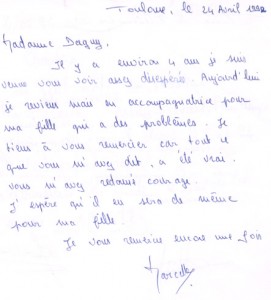 Toulouse, le 24 Avril 1992
Madame Daguy,
Il y a environ 4 ans je suis
venue vous voir assez désespérée. Aujourd'hui
je reviens mais en accompagnatrice pour
ma fille qui a des problèmes. Je
tiens à vous remercier car tout ce
que vous m'avez dit, a été vrai.
vous m'avez redonné courage.
J'espère qu'il en sera de même
pour ma fille.
Je vous remercie encore une fois
Marcelle